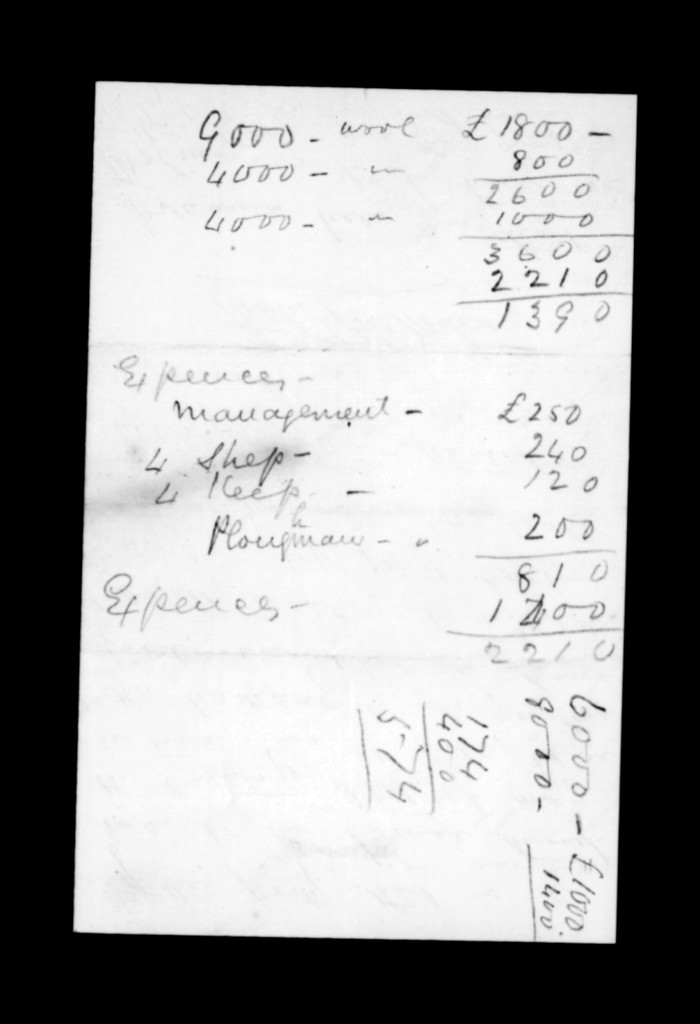 9000 - wool £1800 -
4000 - " 800
2600
4000 - " 1000
3600
2210
1390
Expences -
Management - £250
4 Shep - 240
4 Keep - 120
Ploughman - " 200
810
Expences - 1400
2210
6000 - £1000
9000 - 1400
174
400
574